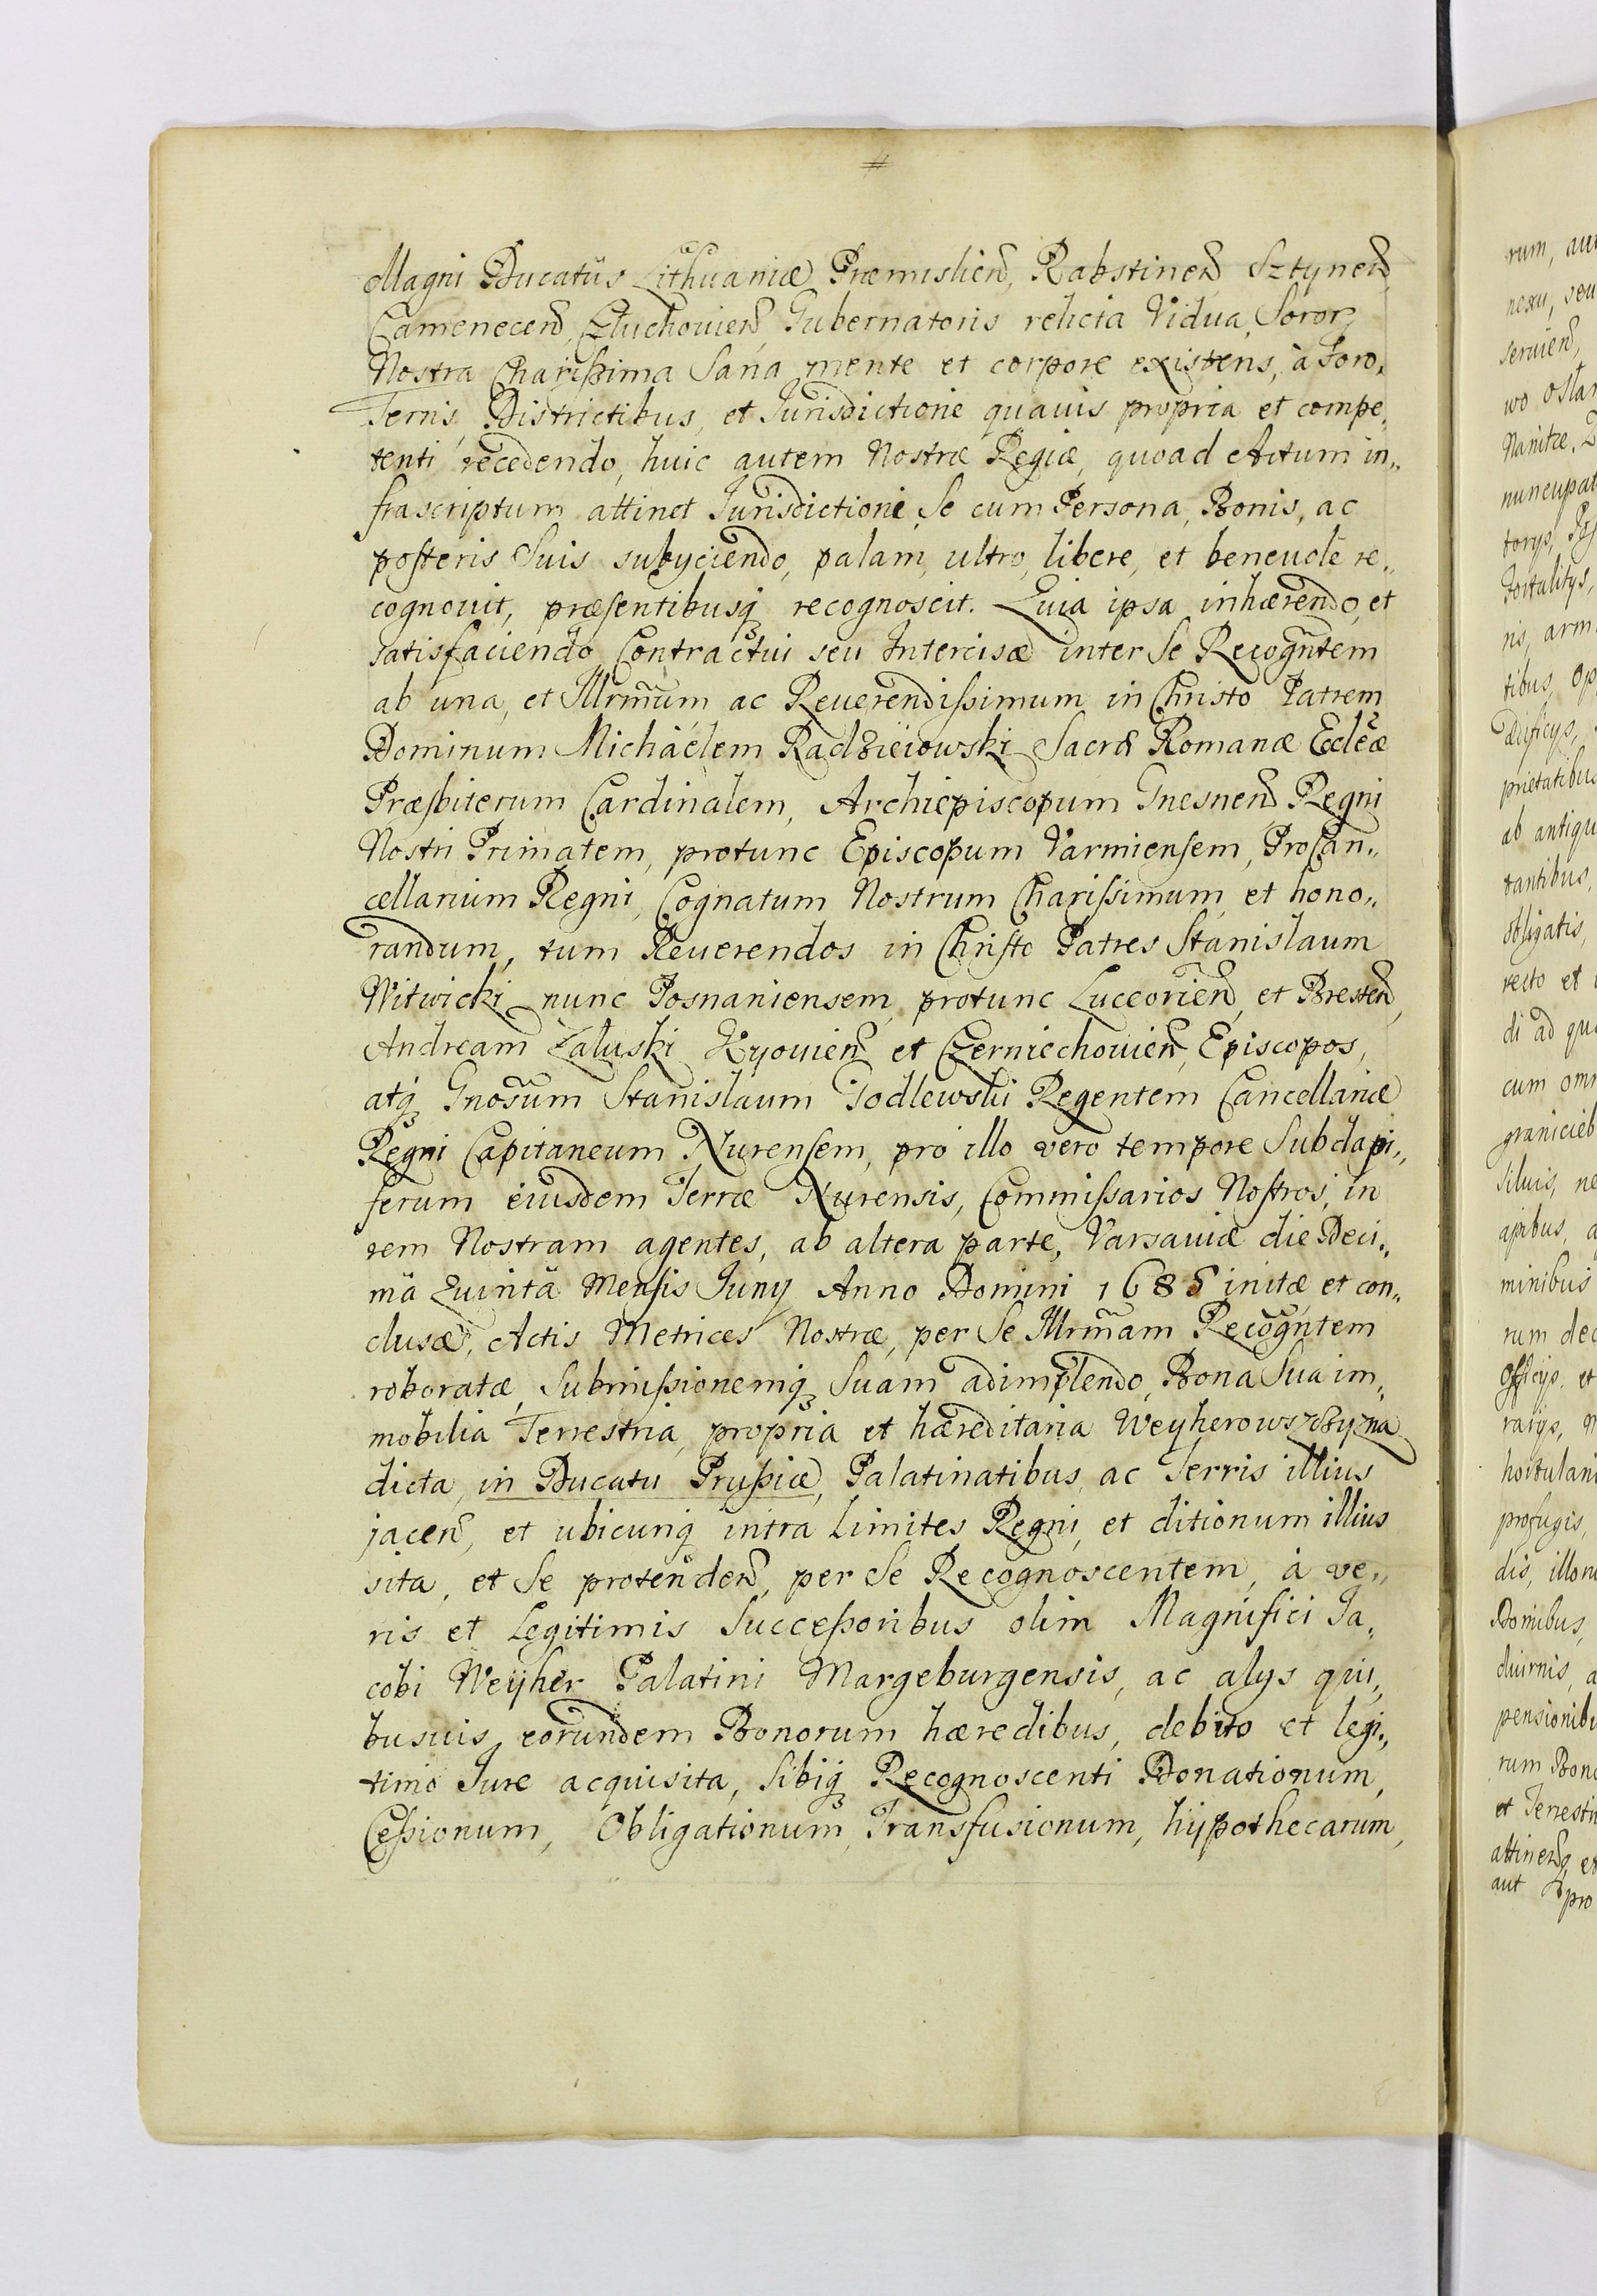 #
Magni Ducatus Lithuaniæ Præmislien̄, Rabstinen̄ Sztynen̄
Camenecen̄, Czluchouien̄ Gubernatoris relicta Vidua, Soror
Nostra Charißima Sana mente et corpore existens, à Foro,
Terris, Districtibus, et Jurisdictione quauis propria et compe„
tenti recedendo, huic autem Nostræ Regiæ, quoad Actum in„
frascriptum attinet Jurisdictioni Se cum Persona, Bonis, ac
posteris Suis subyciendo, palam, ultro, libere, et beneuolè re„
cognouit, præsentibusq recognoscit. Quia ipsa inhærendo, et
satisfaciendo Contractui seu Intercisæ inter Se Recogn̄tem
ab una, et Illrm̄um ac Reuerendissimum in Christo Patrem
Dominum Michaëlem Radzieiowski Sacræ Romanæ Ecclēæ
Præsbiterum Cardinalem, Archiepiscopum Gnesnen̄ Regni
Nostri Primatem, protunc Episcopum Varmiensem, ProCan„
cellarium Regni, Cognatum Nostrum Charissimum et hono„
randum, tum Reuerendos in Christo Patres Stanislaum
Witwicki nunc Posnaniensem, protunc Luceorien̄, et Bresten̄,
Andream Zaluski Kyouien̄ et Czerniechouien̄, Episcopos,
atq Gnōsum Stanislaum Godlewski Regentem Cancellariæ
Regni Capitaneum Nurensem, pro illo vero tempore Subdapi„
ferum eiusdem Terræ Nurensis, Commissarios Nostros, in
rem Nostram agentes, ab altera parte, Varsauiæ die Deci„
mâ Quintâ Mensis Juny Anno Domini 1685 initæ et con„
clusæ, Actis Metrices Nostræ, per Se Illrm̄am Recogn̄tem
roboratæ, Submißionemq Suam adimplendo, Bona Sua im„
mobilia Terrestria, propria et hæreditaria Weyherowszczyzna
dicta, in Ducatu Prußiæ, Palatinatibus, ac Terris illius
jacen̄, et ubicunq intra Limites Regni, et ditionum illius
sita, et Se protenden̄, per Se Recognoscentem, à ve„
ris et Legitimis Succeßoribus olim Magnifici Ja„
cobi Weyher Palatini Margeburgensis, ac alys qui„
busuis eorundem Bonorum hæredibus, debito et legi„
timo Jure acquisita, Sibiq Recognoscenti Donationum,
Ceßionum, Obligationum, Transfusionum, hypothecarum,
rum, aut
nexu, seu
seruien̄,
nuncupat
ab antiqu
tantibus,
obligatis,
di ad qu
cum om
granicieb
siluis, ne
minibus
rum dec
hortulani
profugis,
dis,
pensionibu
rum Bono
et Terestri
aut pro